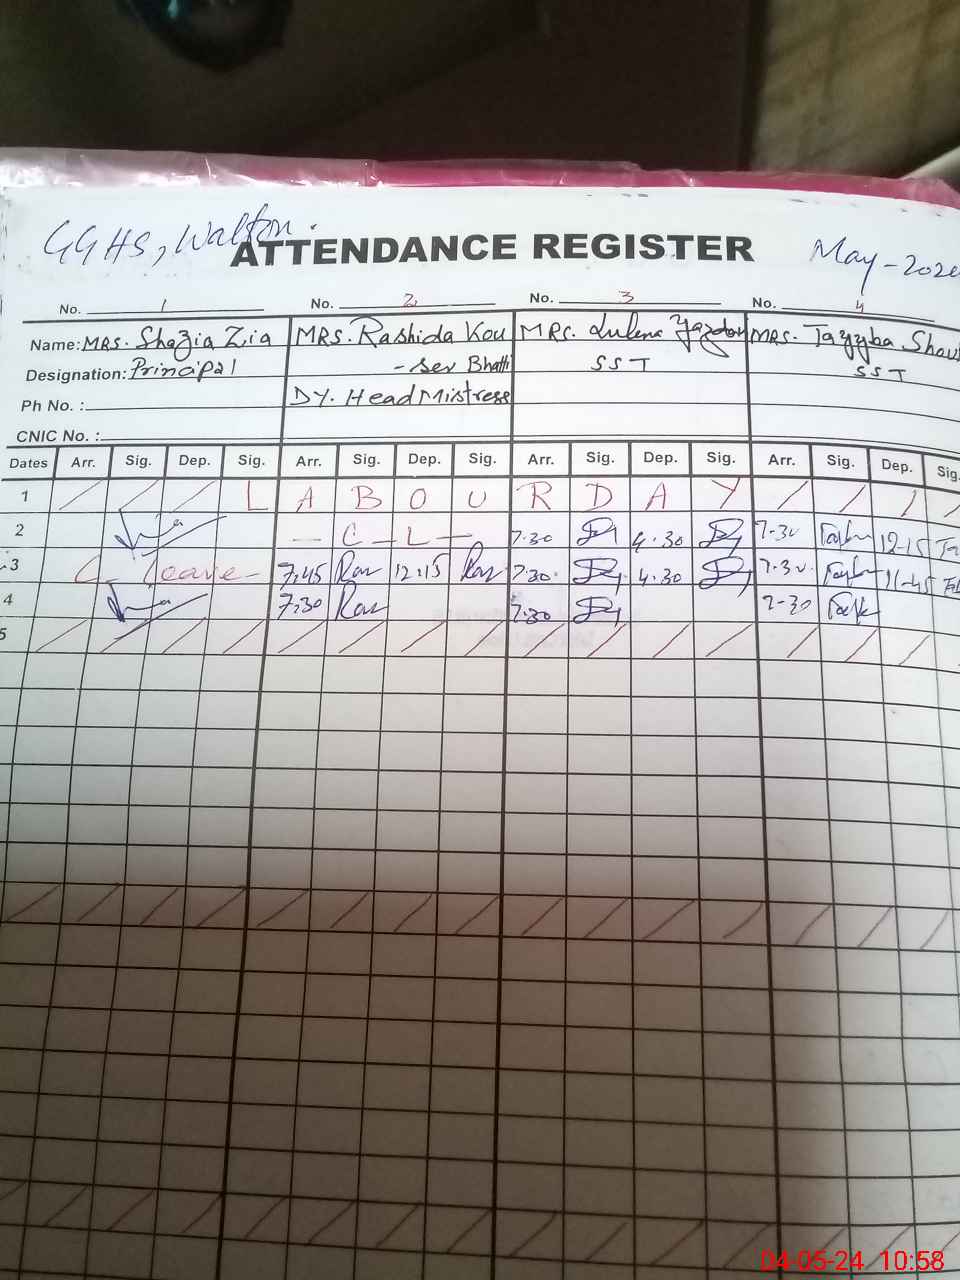 GGHS, Walton.
ATTENDANCE REGISTER
May-202
No. 1 No. 2 No. 3 No. 4
Name: MRS. Shazia Zia MRS. Rashida Kou MRS. MRS. Tayyba Shau
Designation: Principal - ser Bhatti SST SST
Ph No. : DY. HeadMistress
CNIC No. :
Dates Arr. Sig. Dep. Sig. Arr. Sig. Dep. Sig. Arr. Sig. Dep. Sig. Arr. Sig. Dep. Sig.
1 / / / L A B O U R D A Y / / / /
2 - C - L - 7.30 4.30 7.30 12-15
3 C_ leave - 7.45 12.15 7.30. 4.30 7.30. 11-45
4 7.30 7.30 7-30
5 / / / / / / / / / / / / / / /
04-05-24 10:58